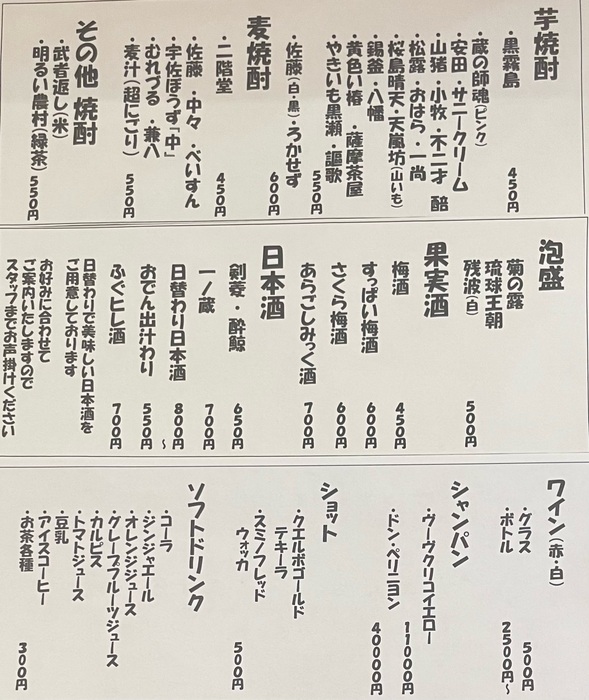 芋焼酎
・黒霧島 450円
・蔵の師魂(ピンク)
・安田・サニークリーム
・山猪・小牧・不二才 醅
・松露・おはら・一尚
・桜島晴天・天嵐坊(山いも)
・錫釜・八幡
・黄色い椿・薩摩茶屋
・やきいも黒瀬・謳歌 550円
・佐藤(白・黒)・ろかせず 600円
麦焼酎
・二階堂 450円
・佐藤・中々・べいすん
・宇佐ぼうず「中」
・むれづる・兼八
・麦汁(超にごり) 550円
その他 焼酎
・武者返し(米)
・明るい農村(緑茶) 550円
泡盛
菊の露
琉球王朝
残波(白) 500円
果実酒
梅酒 450円
すっぱい梅酒 600円
さくら梅酒 600円
あらごしみっく酒 700円
日本酒
剣菱・酔鯨 650円
一ノ蔵 700円
日替わり日本酒 800円～
おでん出汁わり 550円
ふぐヒレ酒 700円
日替わりで美味しい日本酒を
ご用意しております
お好みに合わせて
ご案内いたしますので
スタッフまでお声掛けください
ワイン(赤・白)
・グラス 500円
・ボトル 2500円～
シャンパン
・ヴーヴクリコイエロー 11000円
・ドン・ペリニヨン 40000円
ショット
・クエルボゴールド
テキーラ
・スミノフレッド
ウォッカ 500円
ソフトドリンク
・コーラ
・ジンジャエール
・オレンジジュース
・グレープフルーツジュース
・カルピス
・トマトジュース
・豆乳
・アイスコーヒー
・お茶各種 300円